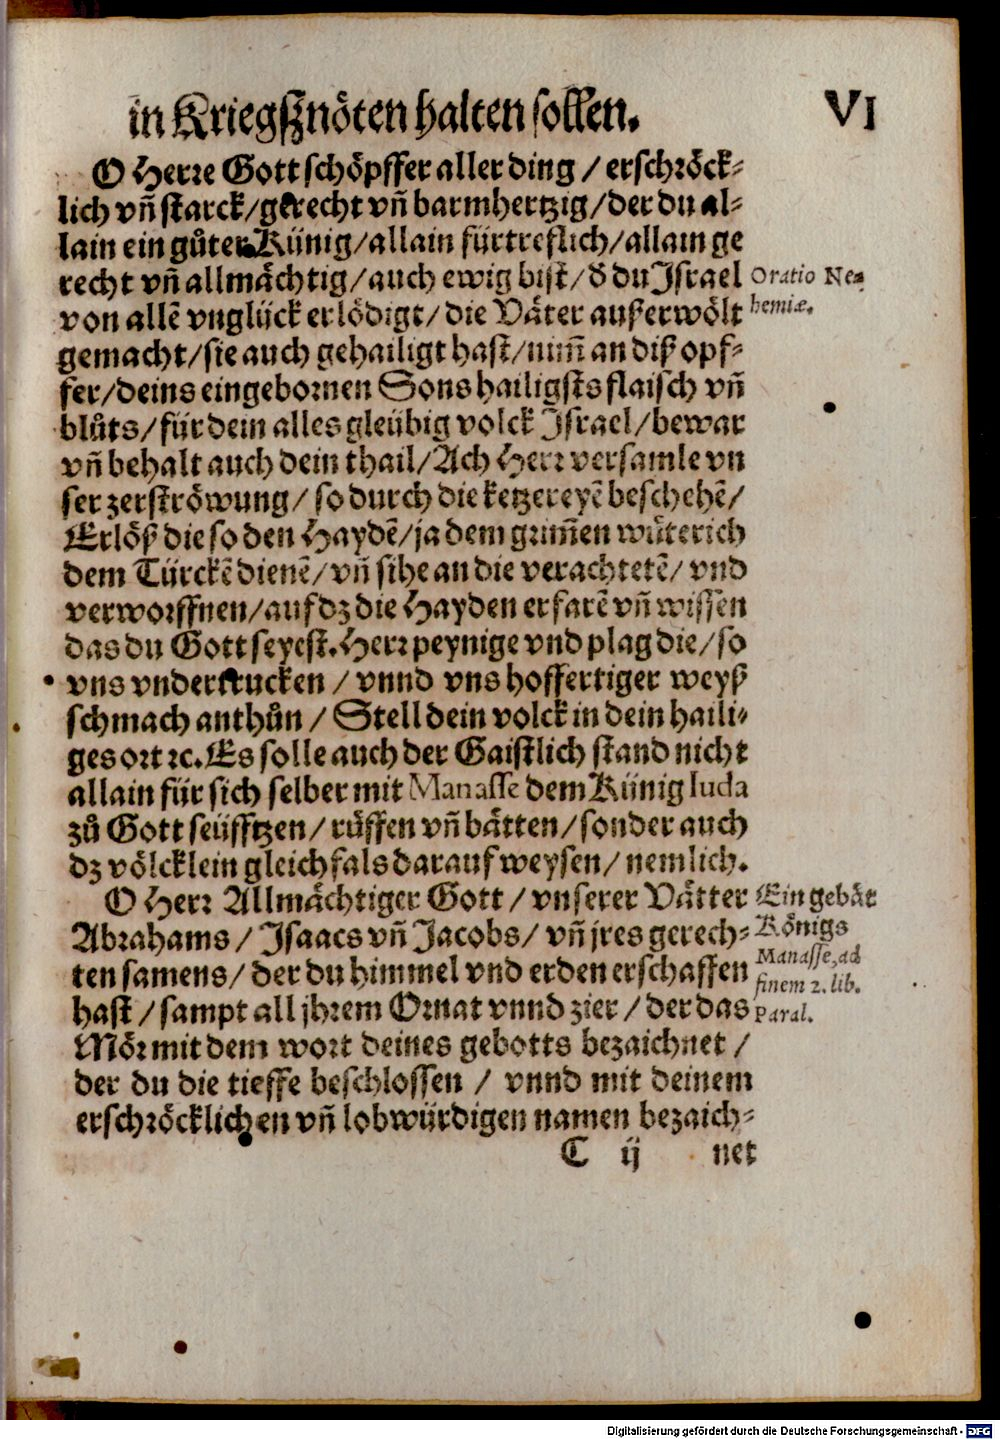 in Kriegßnöten halten sollen. VI
O Herre Gott schöpffer aller ding / erschröck⸗
lich vñ starck/gerecht vñ barmhertzig/der du al⸗
lain ein gůter Künig/allain fürtreflich/allain ge
recht vñ allmächtig/auch ewig bist/ð du Israel
Oratio Ne⸗
hemiæ.
von allẽ vnglück erlödigt/die Väter außerwölt
gemacht/sie auch gehailigt hast/nim̃ an diß opf⸗
fer/deins eingebornen Sons hailigsts flaisch vñ
blůts/für dein alles gleübig volck Israel/bewar
vñ behalt auch dein thail/Ach Herr versamle vn
ser zerströwung/ so durch die ketzereyẽ beschehẽ/
Erlöß die so den Haydẽ/ja dem grim̃en wůterich
dem Türckẽ dienẽ/vñ sihe an die verachtetẽ/ vnd
verworffnen/auf dz die Hayden erfarẽ vñ wissen
das du Gott seyest. Herr peynige vnd plag die/so
vns vnderstrucken / vnnd vns hoffertiger weyß
schmach anthůn / Stell dein volck in dein haili⸗
ges ort ꝛc. Es solle auch der Gaistlich stand nicht
allain für sich selber mit Manasse dem Künig Iuda
zů Gott seüfftzen/ růffen vñ bätten/sonder auch
dz völcklein gleichfals darauf weysen/ nemlich.
O Herr Allmächtiger Gott / vnserer Vätter
Ein gebät
Königs
Manasse, ad
finem 2. lib.
Paral.
Abrahams / Isaacs vñ Jacobs/ vñ jres gerech⸗
ten samens/ der du himmel vnd erden erschaffen
hast / sampt all jhrem Ornat vnnd zier / der das
Mör mit dem wort deines gebotts bezaichnet /
der du die tieffe beschlossen / vnnd mit deinem
erschröcklichen vñ lobwürdigen namen bezaich⸗
C ij net
Digitalisierung gefördert durch die Deutsche Forschungsgemeinschaft - DFG